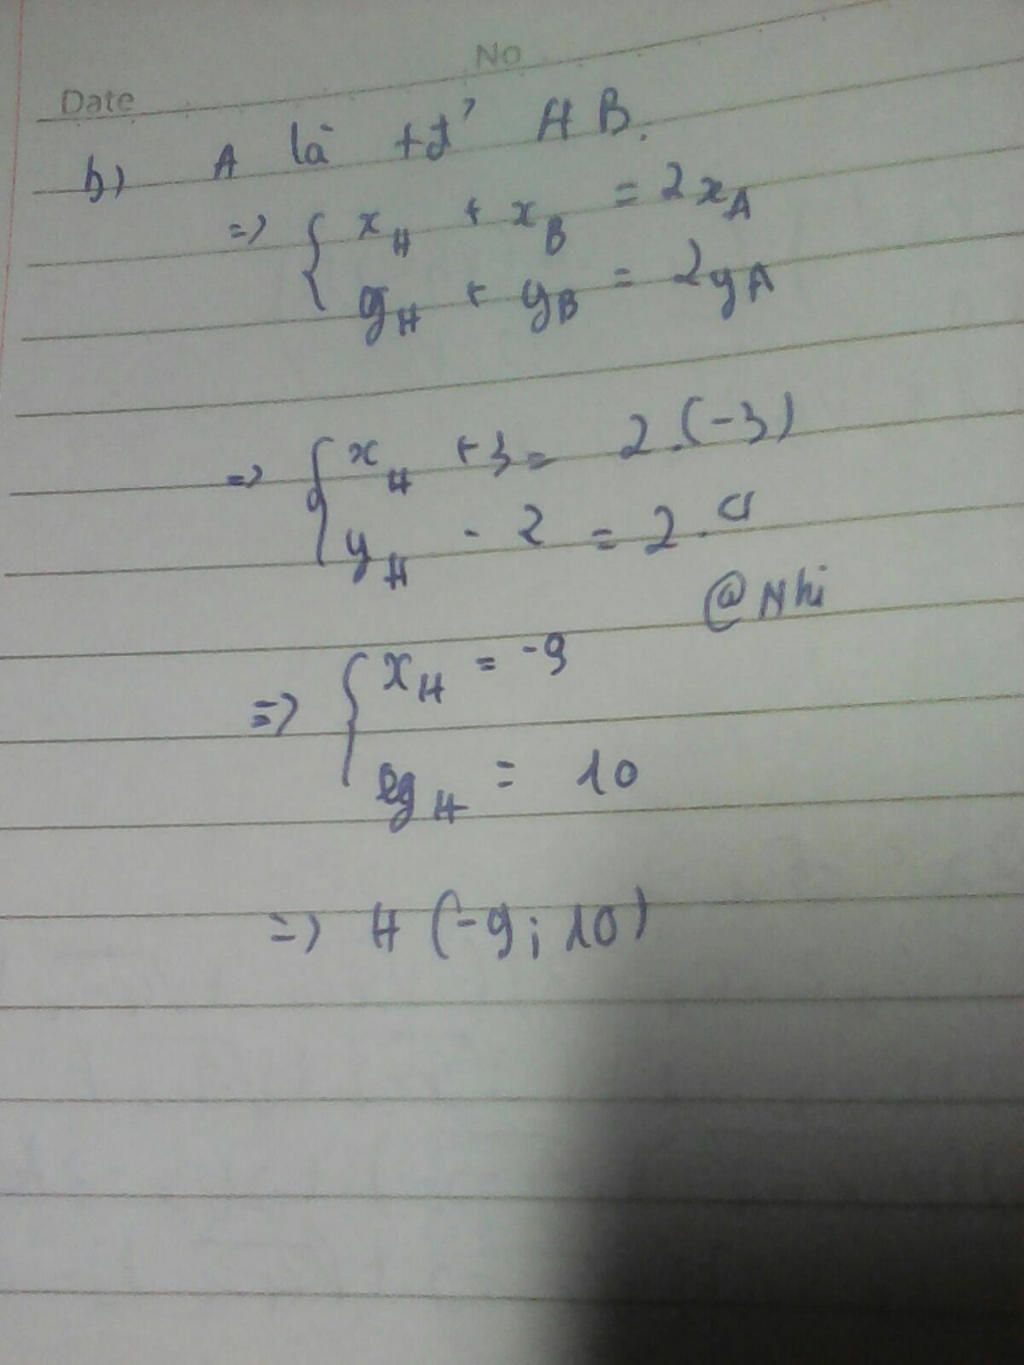 No
Date
b) A là tđ' HB.
=> { x_H + x_B = 2x_A
y_H + y_B = 2y_A
=> { x_H + 3 = 2.(-3)
y_H - 2 = 2.4
@Nhi
=> { x_H = -9
y_H = 10
=> H (-9; 10)